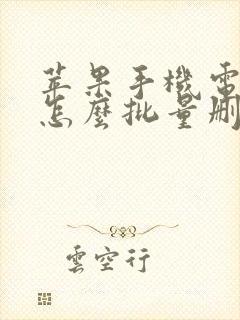 苹果手機電
怎麼批量刪
雲空行